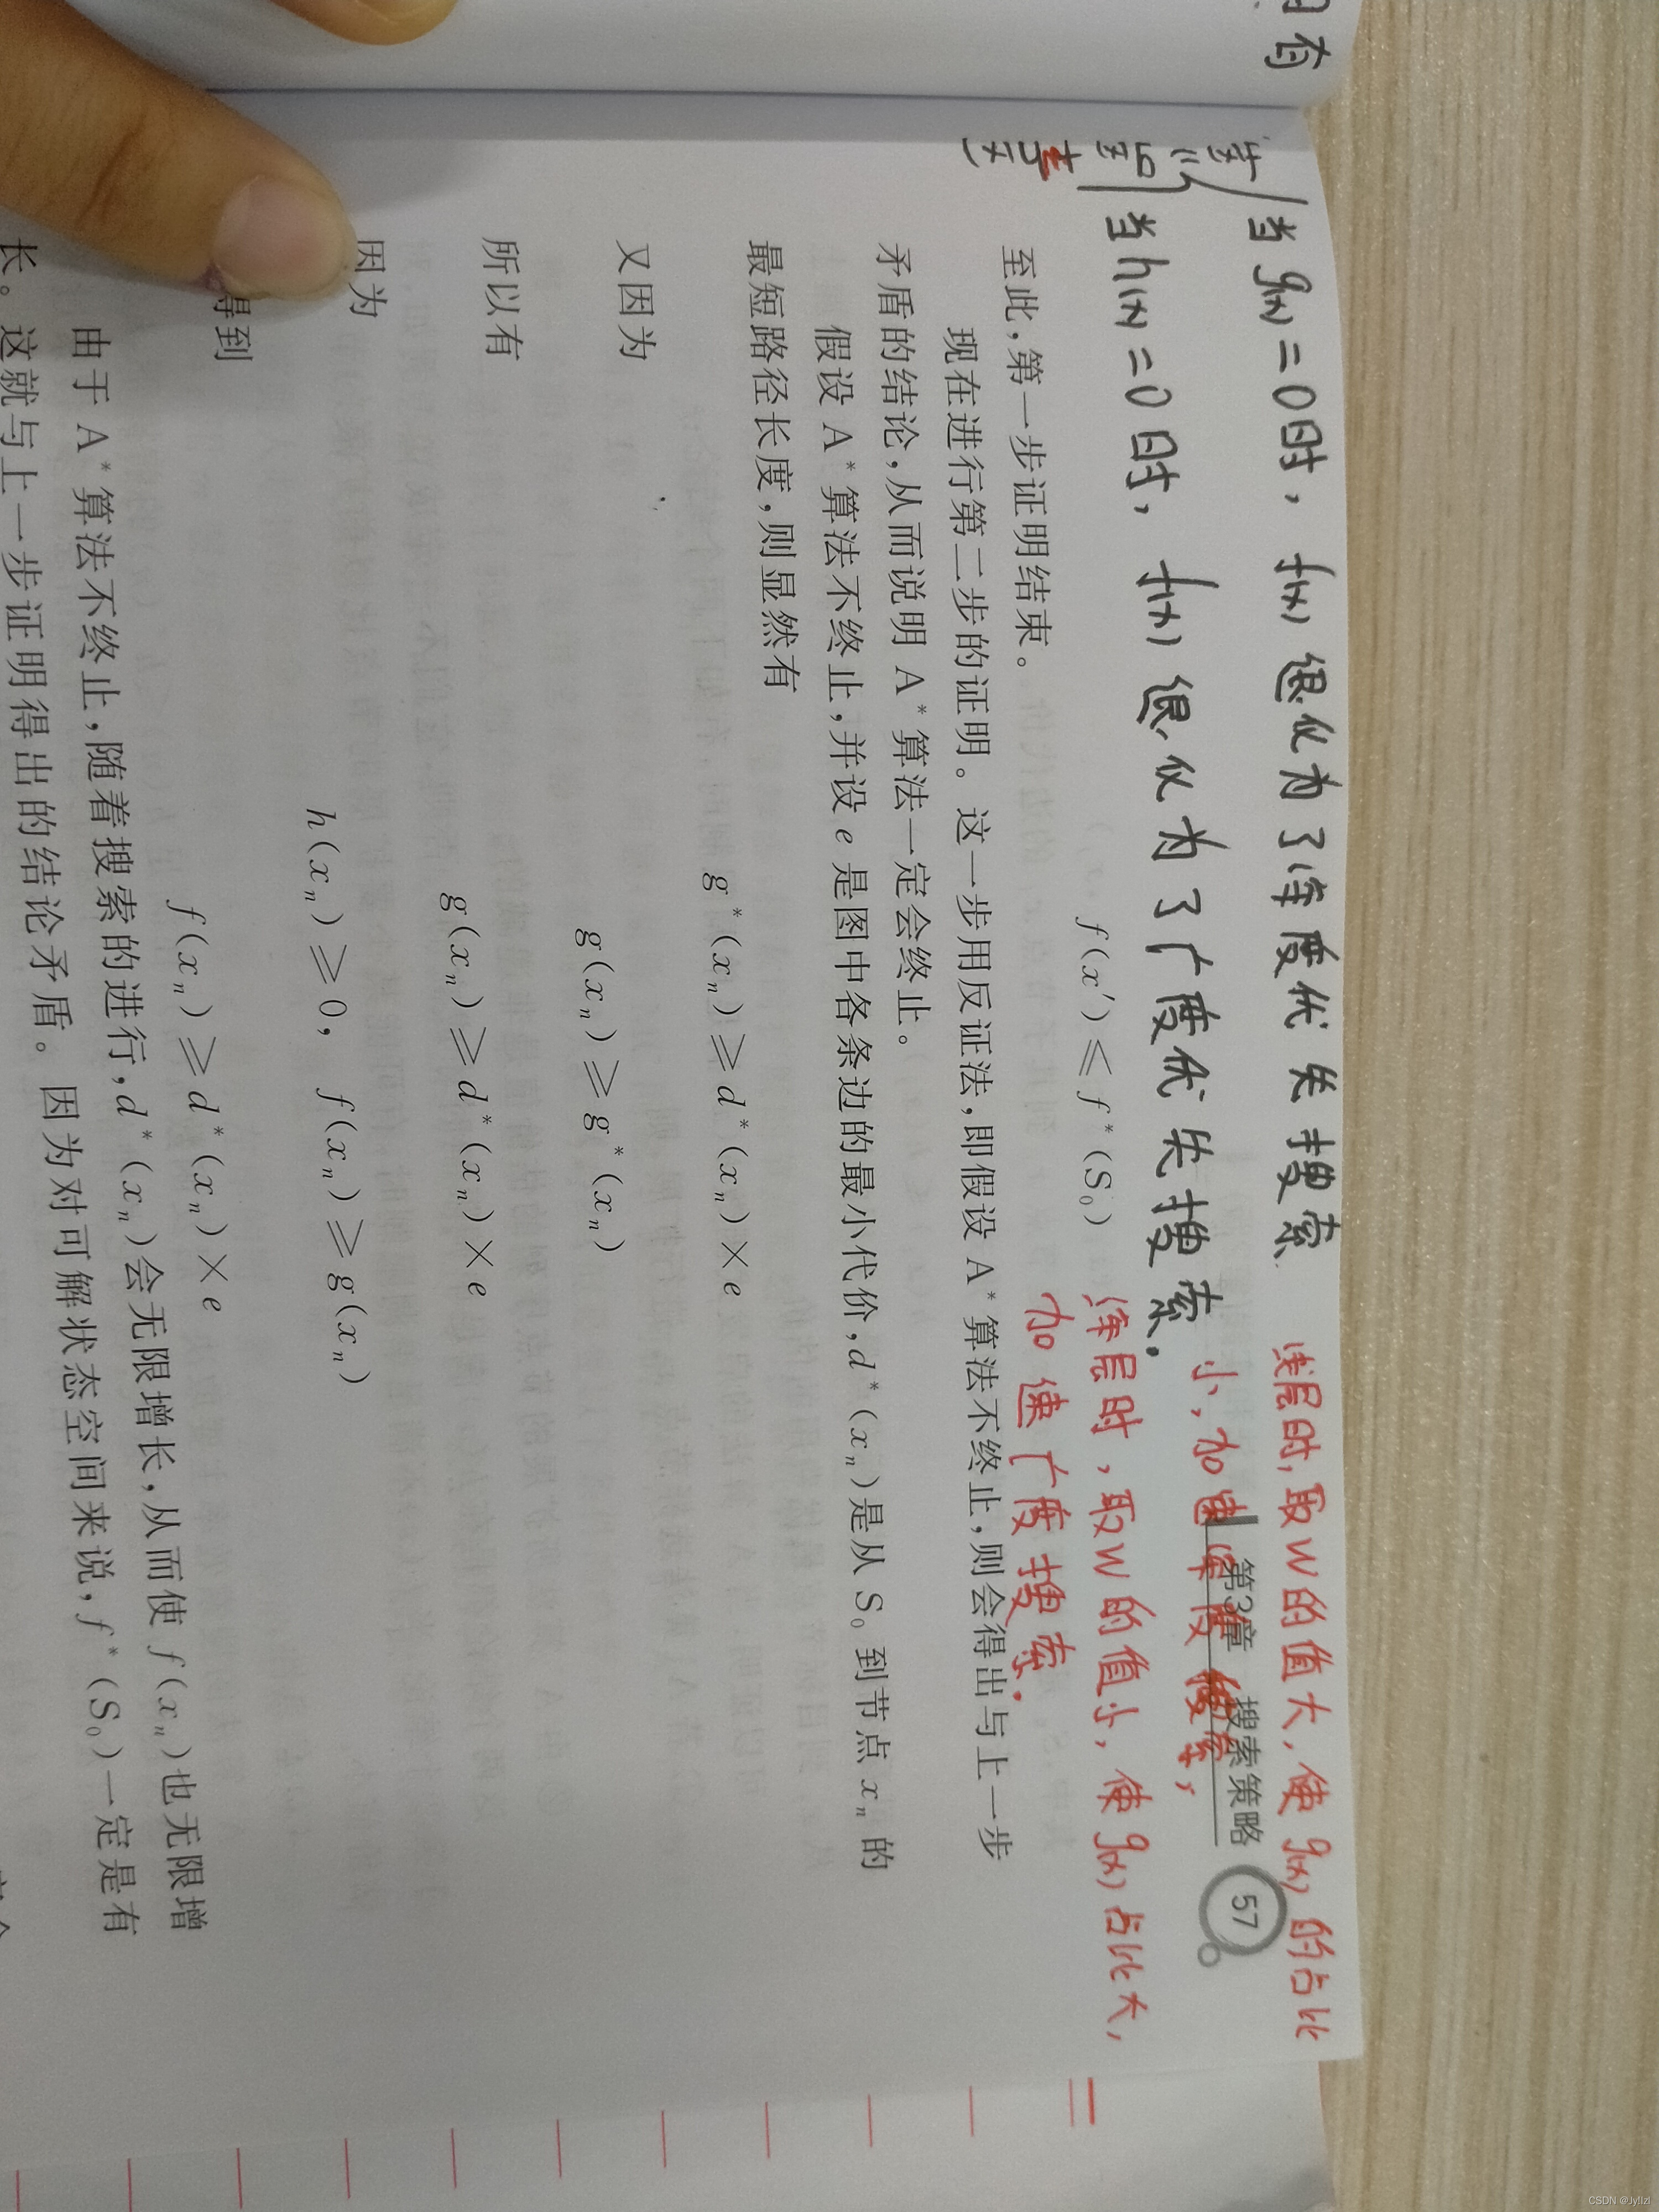 有
当g(x)=0时，f(x)退化为了深度优先搜索.
浅层时，取W的值大，使g(x)的占比
小，加速深度搜索，
当h(x)=0时，f(x)退化为了广度优先搜索。
深层时，取W的值小，使g(x)占比大，
加速广度搜索.
第3章 搜索策略 57
f(x′)≤f*(S₀)
至此，第一步证明结束。
现在进行第二步的证明。这一步用反证法，即假设 A*算法不终止，则会得出与上一步
矛盾的结论，从而说明 A*算法一定会终止。
假设 A*算法不终止，并设 e 是图中各条边的最小代价，d*(xₙ)是从 S₀ 到节点 xₙ 的
最短路径长度，则显然有
g*(xₙ)≥d*(xₙ)×e
又因为
g(xₙ)≥g*(xₙ)
所以有
g(xₙ)≥d*(xₙ)×e
因为
h(xₙ)≥0, f(xₙ)≥g(xₙ)
得到
f(xₙ)≥d*(xₙ)×e
由于 A*算法不终止，随着搜索的进行，d*(xₙ)会无限增长，从而使 f(xₙ)也无限增
长。这就与上一步证明得出的结论矛盾。因为对可解状态空间来说，f*(S₀)一定是有
CSDN @Jylizl